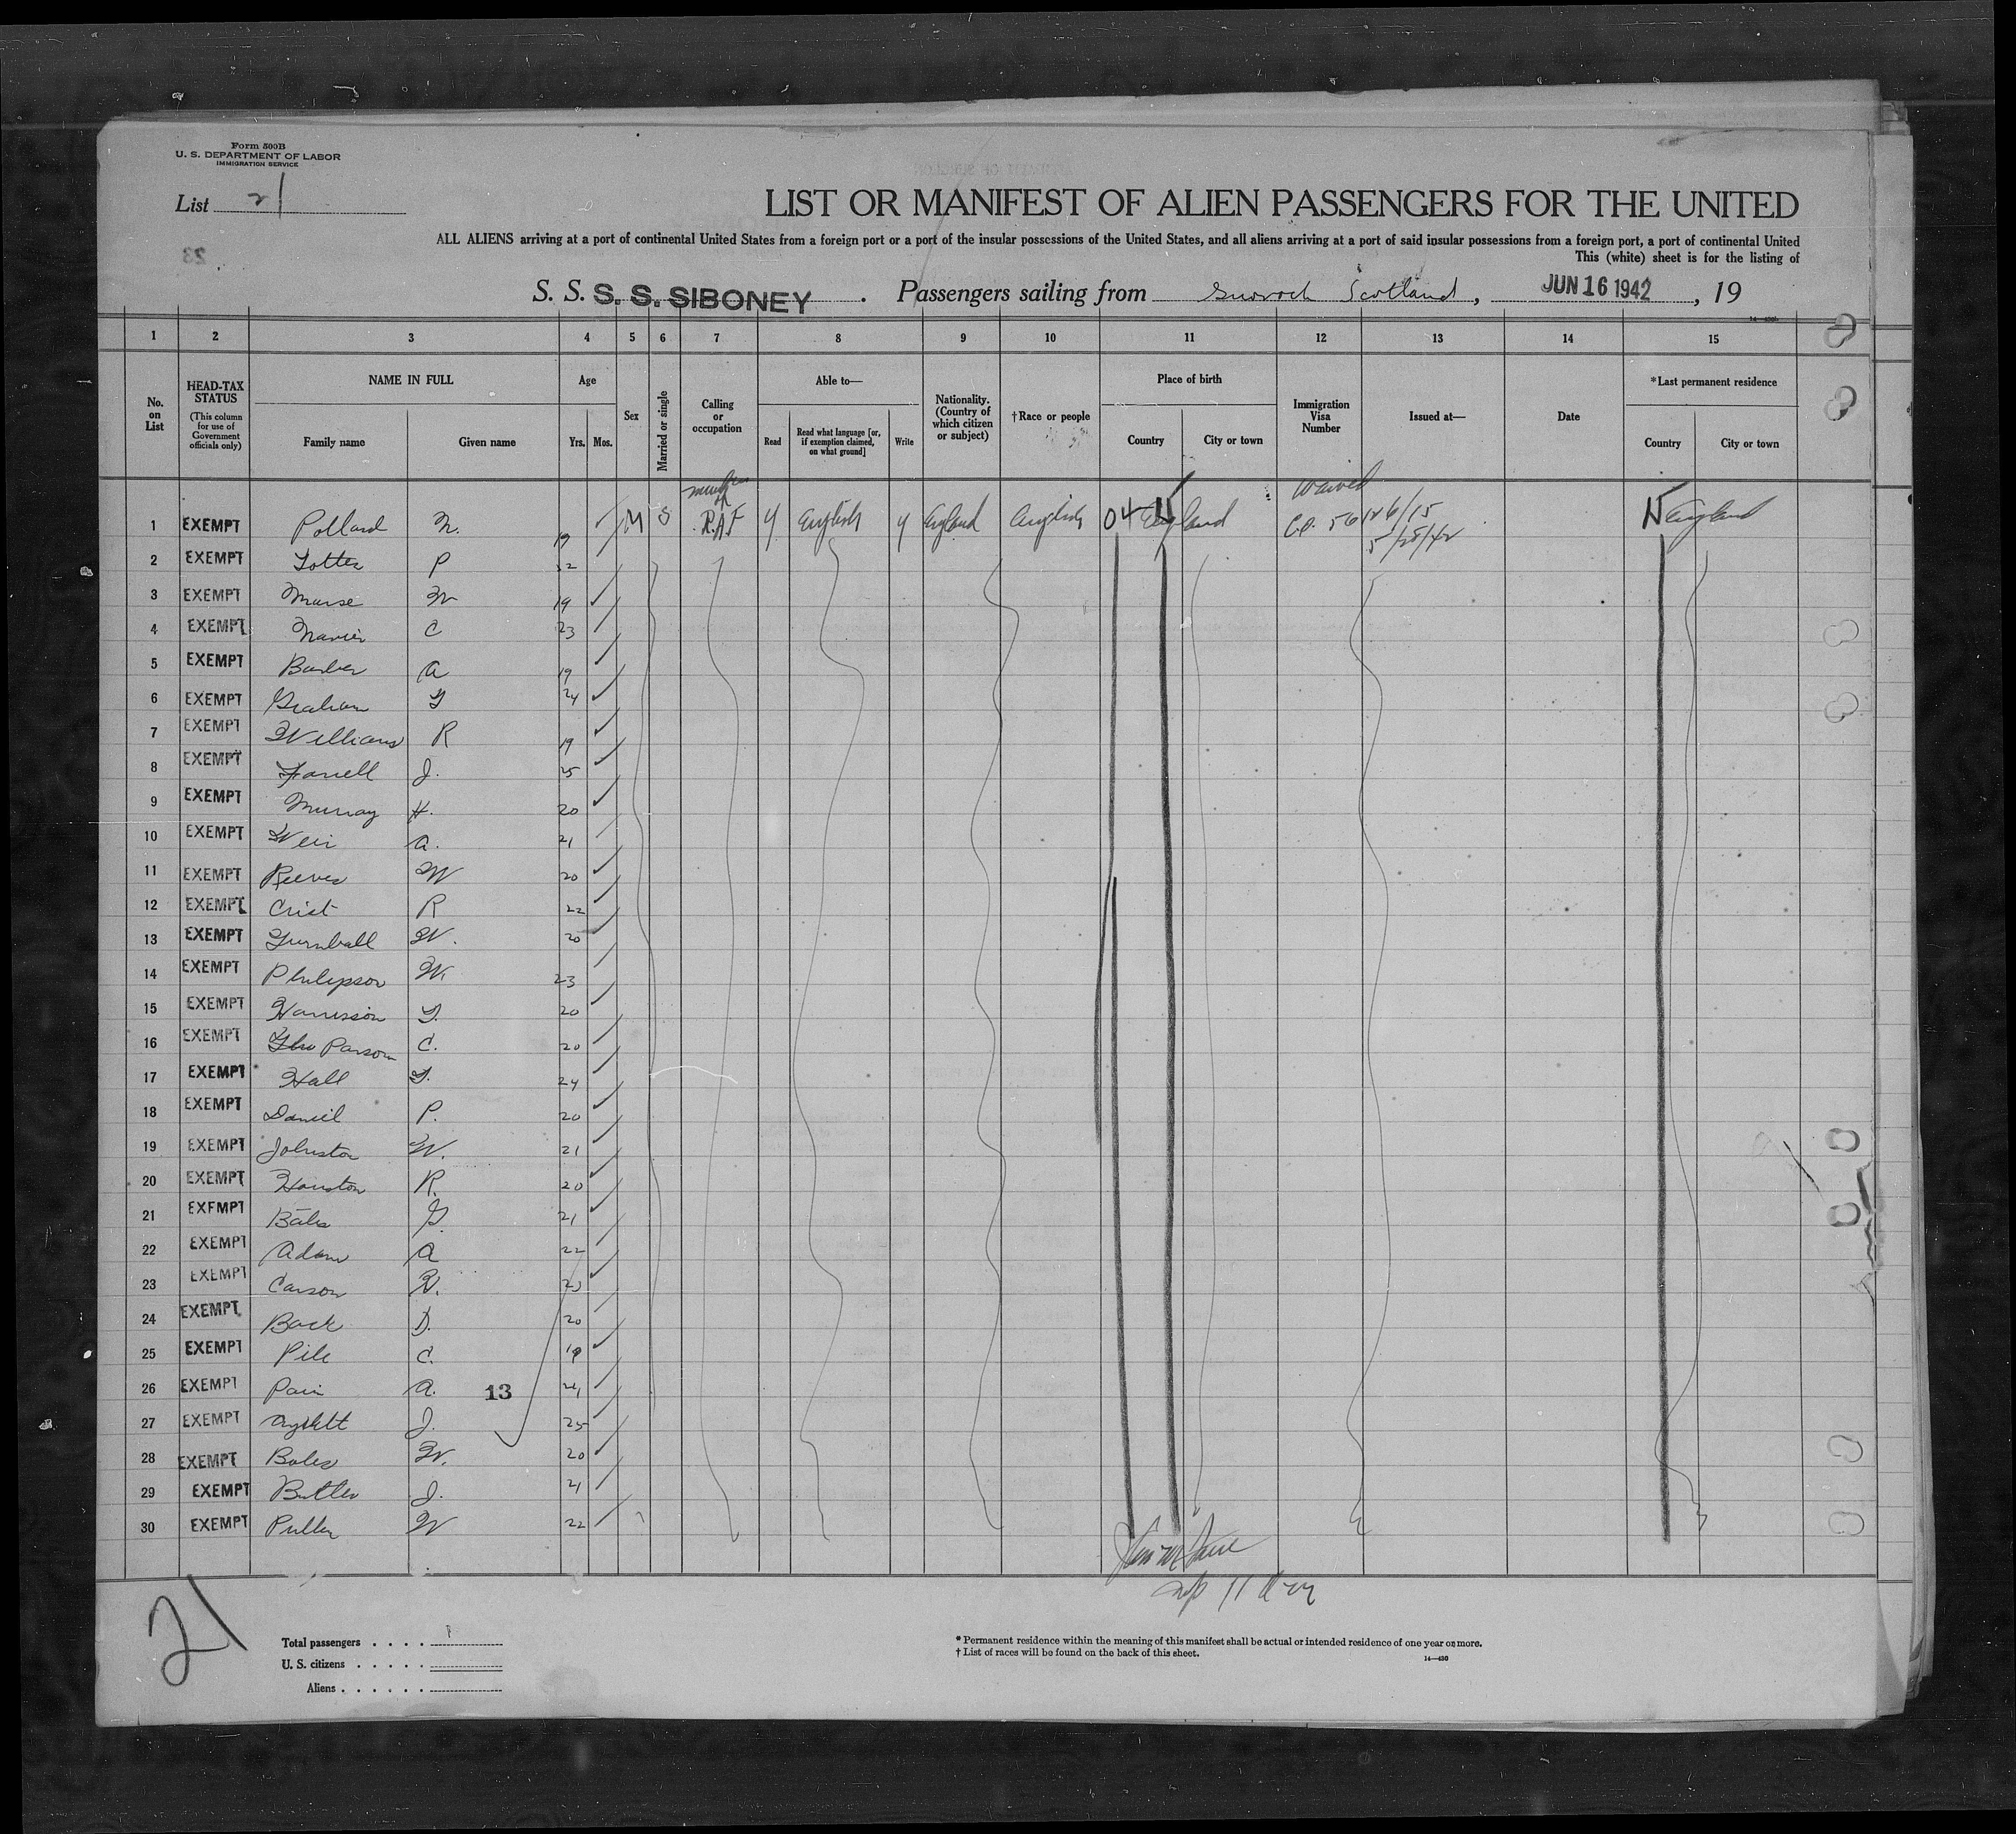 Form 500B
U. S. DEPARTMENT OF LABOR
IMMIGRATION SERVICE
List 21
LIST OR MANIFEST OF ALIEN PASSENGERS FOR THE UNITED
ALL ALIENS arriving at a port of continental United States from a foreign port or a port of the insular possessions of the United States, and all aliens arriving at a port of said insular possessions from a foreign port, a port of continental United
This (white) sheet is for the listing of
S. S. S. S. SIBONEY . Passengers sailing from Scotland , JUN 16 1942 , 19
1 2 3 4 5 6 7 8 9 10 11 12 13 14 15
No. on List
HEAD-TAX STATUS
(This column for use of Government officials only)
NAME IN FULL
Family name Given name
Age
Yrs. Mos.
Sex
Married or single
Calling or occupation
Able to—
Read
Read what language [or, if exemption claimed, on what ground]
Write
Nationality. (Country of which citizen or subject)
†Race or people
Place of birth
Country City or town
Immigration Visa Number
Issued at—
Date
*Last permanent residence
Country City or town
waived
1 EXEMPT Pollard 19 M S R.A.F y English y England English 04 England England
5/25/42
2 EXEMPT P
3 EXEMPT W 19
4 EXEMPT C 23
5 EXEMPT Barber A 19
6 EXEMPT Graham 24
7 EXEMPT Williams R 19
8 EXEMPT Farrell J. 25
9 EXEMPT Murray H. 20
10 EXEMPT Weir A. 21
11 EXEMPT Reeves W 20
12 EXEMPT Crist R 22
13 EXEMPT Turnball W. 20
14 EXEMPT Philipson W. 23
15 EXEMPT Harrison 20
16 EXEMPT Parsons C. 20
17 EXEMPT Hall 24
18 EXEMPT Daniel P. 20
19 EXEMPT Johnston W. 21
20 EXEMPT Houston R. 20
21 EXEMPT Bates G. 21
22 EXEMPT Adam A 22
23 EXEMPT Carson
24 EXEMPT Back D. 20
25 EXEMPT Pile C. 19
26 EXEMPT Pain A. 13 21
27 EXEMPT J. 25
28 EXEMPT Boles W. 20
29 EXEMPT Butler J. 21
30 EXEMPT Puller W 22
21
Total passengers
U. S. citizens
Aliens
* Permanent residence within the meaning of this manifest shall be actual or intended residence of one year or more.
† List of races will be found on the back of this sheet.
14—430